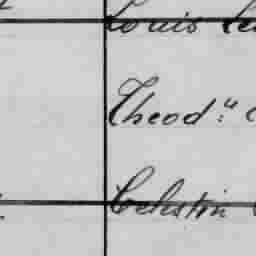 Louis
Theod."
Celestin